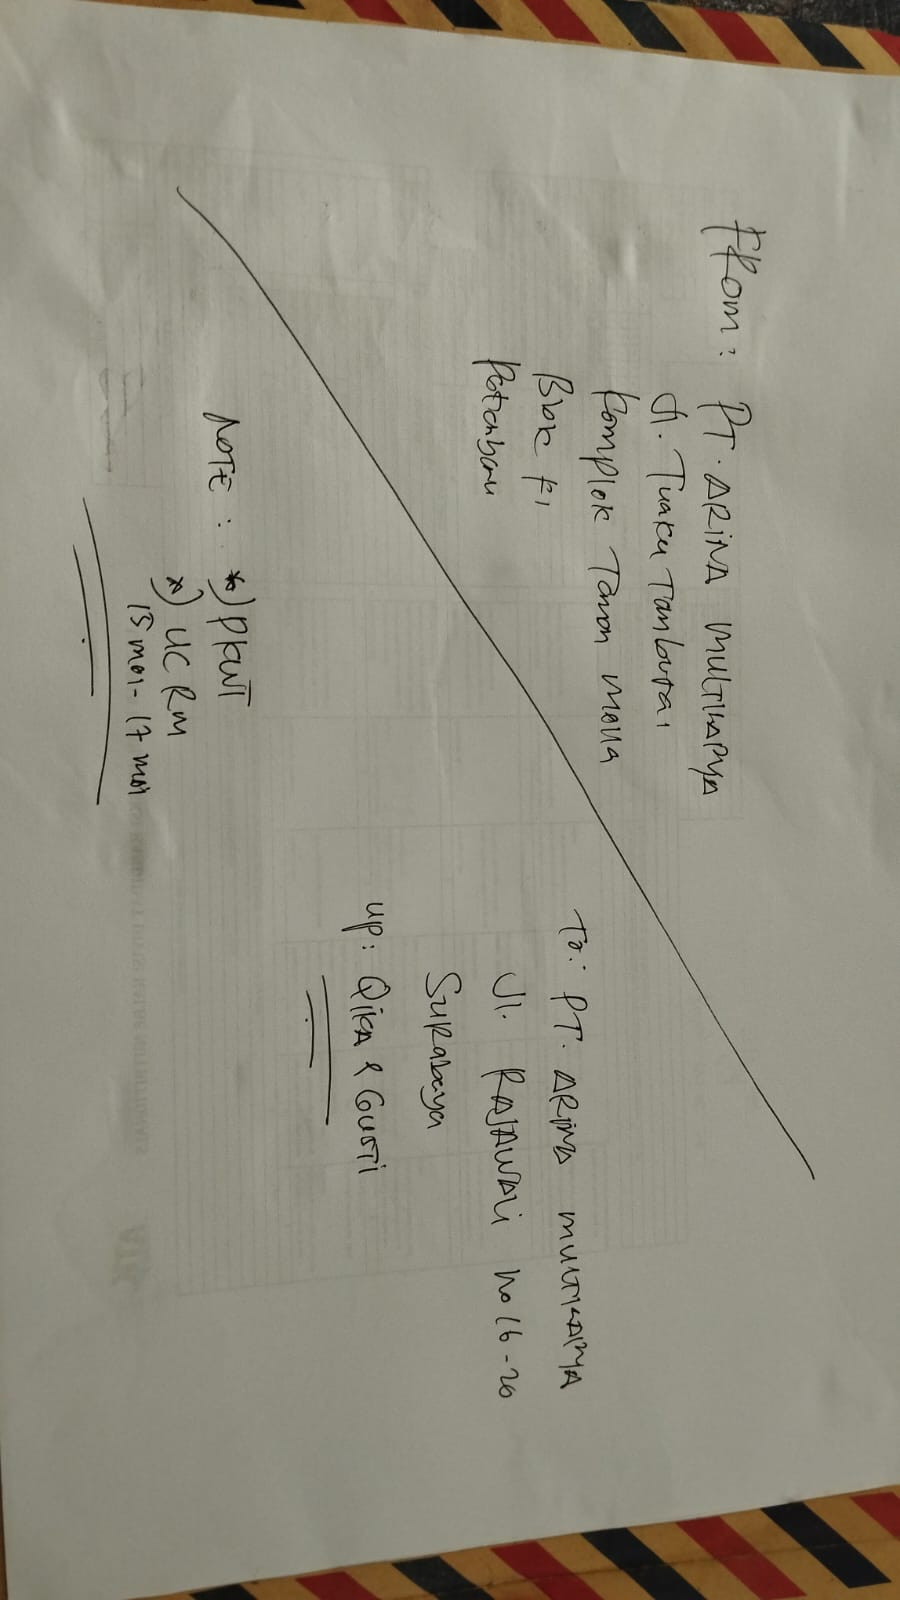 FROM: PT. ARINA MULTIKARYA
Jl. Tuaku Tambusai
Komplek Taman Mella
Blok F1
Pekanbaru
To: PT. ARINA MULTIKARYA
Jl. RAJAWALi No 16-20
SURabaya
UP: QiKA & GUSTi
NOTE: *) PKWT
*) UC RM
15 mei - 17 mei